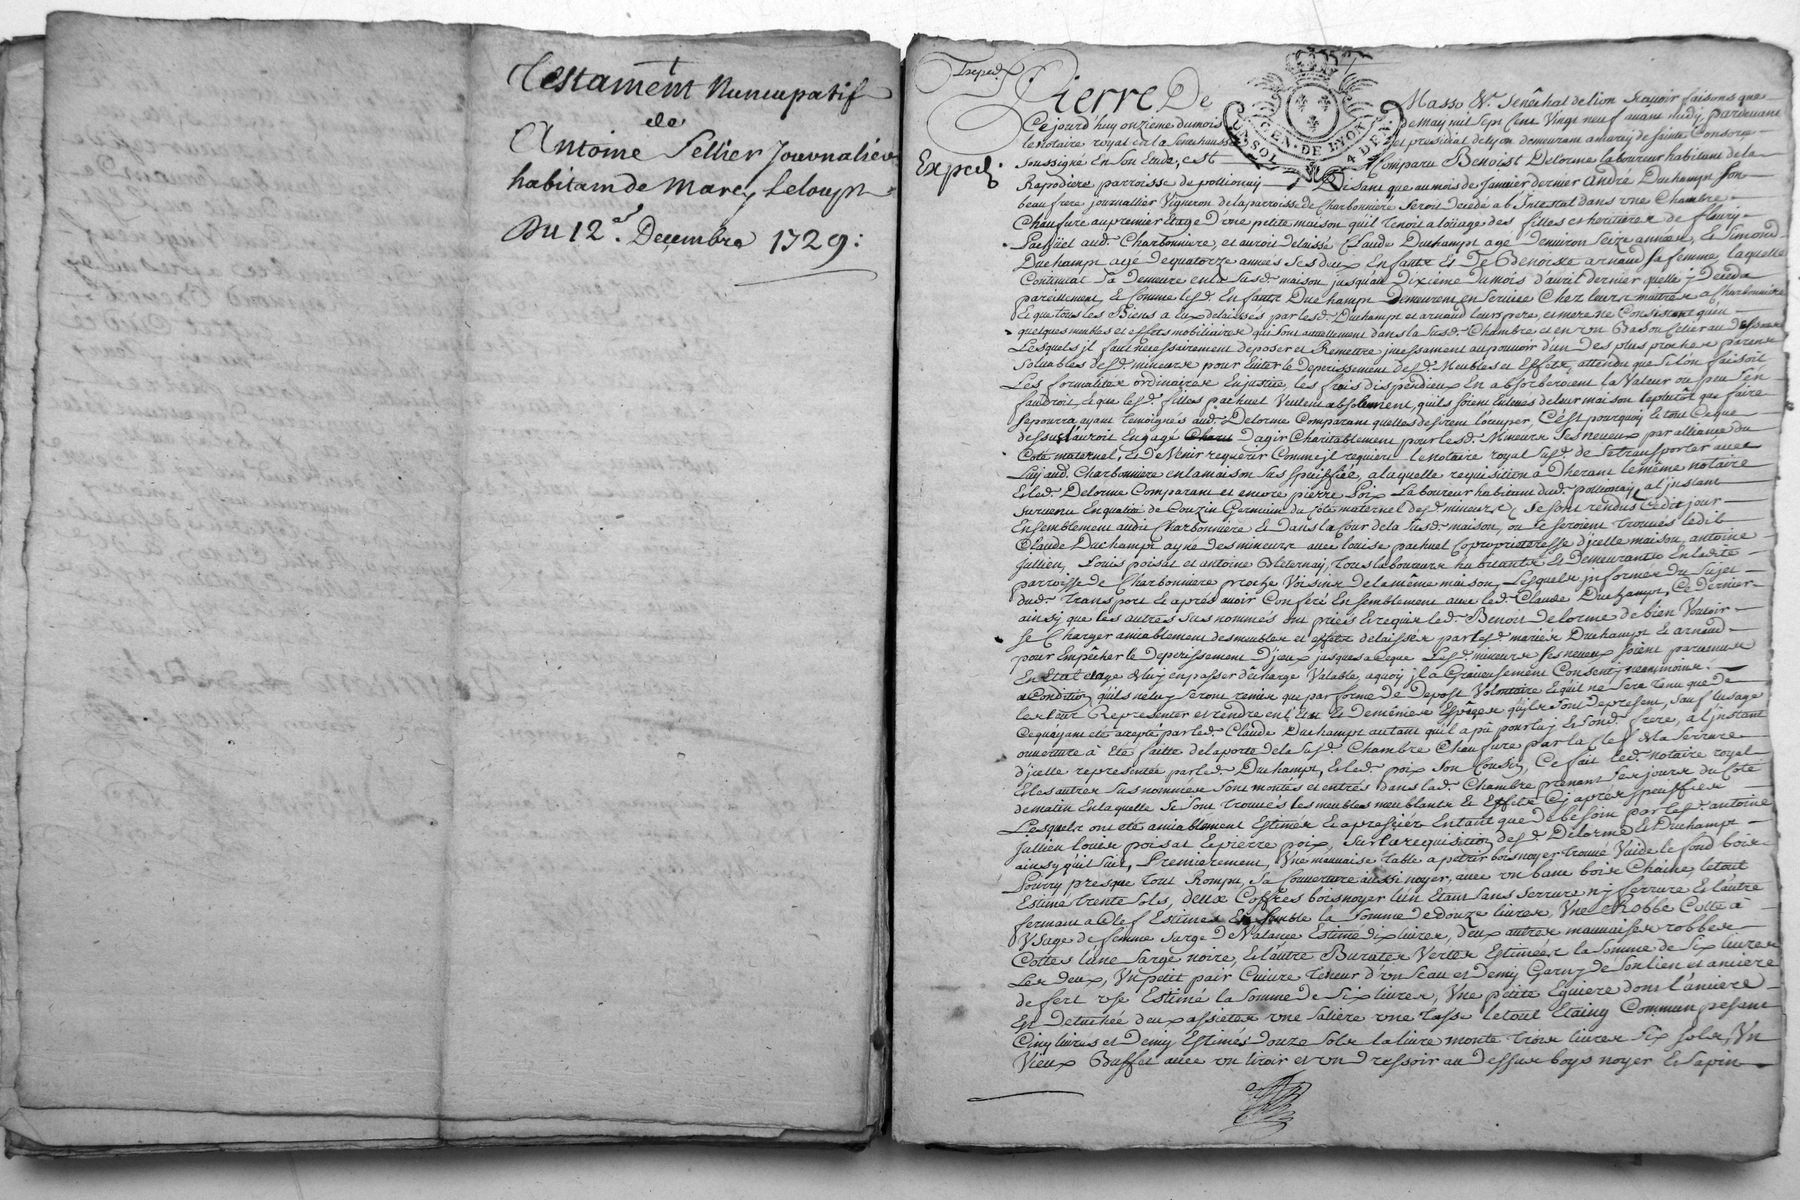 Testament Nuncupatif
de
Antoine Sellier Journalier
habitam de Marcy Leloup
Du 12e. Decembre 1729:
Exped.
Pierre De Masso Sr. Senéchal de lion Scavoir faisons que
Cejourd'huy onzieme du mois de May mil sept Cent Vingt neuf avant midy pardevant
le Notaire royal en la Senechaussée et presidial de lyon demeurant a marcy de sainte Consorce
Exped.
GEN. DE LYON
UN SOL 4 DEN.
Soussigné En son Etude, est Comparu Benoist Delorme laboureur habitant de la
Rapodiere parroisse de pollionay Disant que au mois de Janvier dernier André Duchampt son
beaufrere journallier Vigneron de la parroisse de Charbonniere Seroit decedé ab Intestat dans une Chambre
Chaufure au premier Etage d'une petite maison qu'il tenoit a loüage des filles et heritieres de fleury
Pachuet aud. Charbonniere, et auroit delaissé Claude Duchampt agé d'environ Seize années, & Simond
Duchampt agé de quatorze années ses deux Enfants Et De Benoiste arnaud sa femme, laquelle
Continüat sa demeure en la susd. maison jusqu'au Dixieme du mois d'avril dernier quelle y Deceda
pareillement, & Comme lesd. Enfants Duchampt Demeurent en service Chez leurs maitres a Charbonniere
& que tous les Biens a Eux delaissés par lesd. Duchampt et arnaud leurs pere, et mere ne Consistent qu'en
quelques meubles et effets mobiliaires qui sont actuellement dans la susd. Chambre et en un Bas ou Celier au dessous
Lesquels jl faut necessairement deposer et Remettre jncessament au pouvoir d'un Des plus proches parens
Solvables desd. mineurs pour Eviter le Deperissement desd. Meubles et Effets, attendu que Si lon faisoit
Les formalités ordinaires En justice, les frais dispendieux En absorberoient la Valeur ou peu S'en
faudroit, & que lesd. filles pachuet Veulent absolument, qu'ils soient Enlevés de leur maison le plutôt que faire
se pourra ayant temoignés aud. Delorme Comparant quelles desirent l'occuper, C'est pourquoy & tout Ce que
dessus l'auroit Engagé d'agir Charitablement pour lesd. Mineurs ses neveux par alliance du
Coté maternel, & De Venir requerir Comme jl requiere le Notaire royal susd. de se transporter avec
Luy aud. Charbonniere en la maison sus spesiffiée, a laquelle requisition a Dherant le même notaire
& led. Delorme Comparant et encore pierre Poix Laboureur habitant dud. pollionay a l'jnstant
survenu En qualité de Couzin Germain du Coté maternel desd. mineurs, se sont rendus Cedit jour
Ensemblement audit Charbonniere & Dans la Cour de la susd. maison, ou se seroient trouvés ledit
Claude Duchampt ayné des mineurs avec louise pachuet Coproprietresse d'jcelle maison, antoine
Jullien, Louis poisat et antoine Bleternay, tous laboureurs habitants & Demeurants En ladite
parroisse de Charbonniere proche Voisins de la même maison, Lesquels jnformés du sujet
dud. transport & aprés avoir Conferé Ensemblement avec led. Claude Duchampt, Ce dernier
ainsy que les autres sus nommés ont priés & requis led. Benoit Delorme de bien Vouloir
se Charger amiablement des meubles et effets delaissés par lesd. mariés Duchampt & arnaud
pour Empêcher le Deperissement D'jceux jusques a Ceque Lesd. mineurs ses neveux soient parvenus
En Etat d'age & luy en passer décharge Valable, aquoy jl a Gravieusement Consenty neanmoins
a Condition qu'ils ne luy seront remis que par forme de Depost Volontaire & qu'il ne sera tenu que de
les Leur Representer et rendre en l'Etat & de même Espêces qu'ils sont de present, sauf l'usage
Cequ'ayant eté accepté par led. Claude Duchampt autant qu'il a pû pour luy & sond. frere, a l'jnstant
ouverture à Eté faitte de la porte de la susd. Chambre Chaufure par la Clef & la serrure
d'jcelle representée par led. Duchampt, & led. poix son Cousin, Ce fait led. notaire royal
& les autres sus nommés sont montés et entrés dans lad. Chambre prenant ses jours du Coté
de matin En laquelle se sont trouvés les meubles meublants & Effets Cy aprés spesiffiés
Lesquels ont eté amiablement Estimés & appressiés En tant que De besoin par lesd. antoine
Jullien louis poisat & pierre poix, sur la requisition desd. Delorme & Duchampt
ainsy qu'il suit, Premierement, Une mauvaise table a petrir bois noyer trouvé Vuide le fond bois
Pourry presque tout Rompu, sa Couverture aussi noyer, avec un banc bois Chaine, le tout
Estimé trente sols, deux Coffres bois noyer l'un Etant sans serrure ny ferrure & l'autre
fermant a Clef Estimés Ensemble la somme de douze livres, Une Robbe Cotte à
Usage de femme sarge De Valance Estimé dix livres, deux autres mauvaises robbes
Cottes l'une sarge noire, & l'autre Burates Vertes Estimées la somme de six livres
Les deux, Un petit pair Cuivre teneur d'un seau et Demy Garny de son lien et anciere
de fert use Estimé la somme De six livres, Une petite Eguiere dont l'anciere
Est Detachée deux assietes une saliere une tasse le tout Etaing Commun pesant
Cinq livres et Demy Estimés douze sols la livre monte trois livres six sols, Un
Vieux Buffet avec un tiroir et un dressoir au dessus boys noyer & sapin